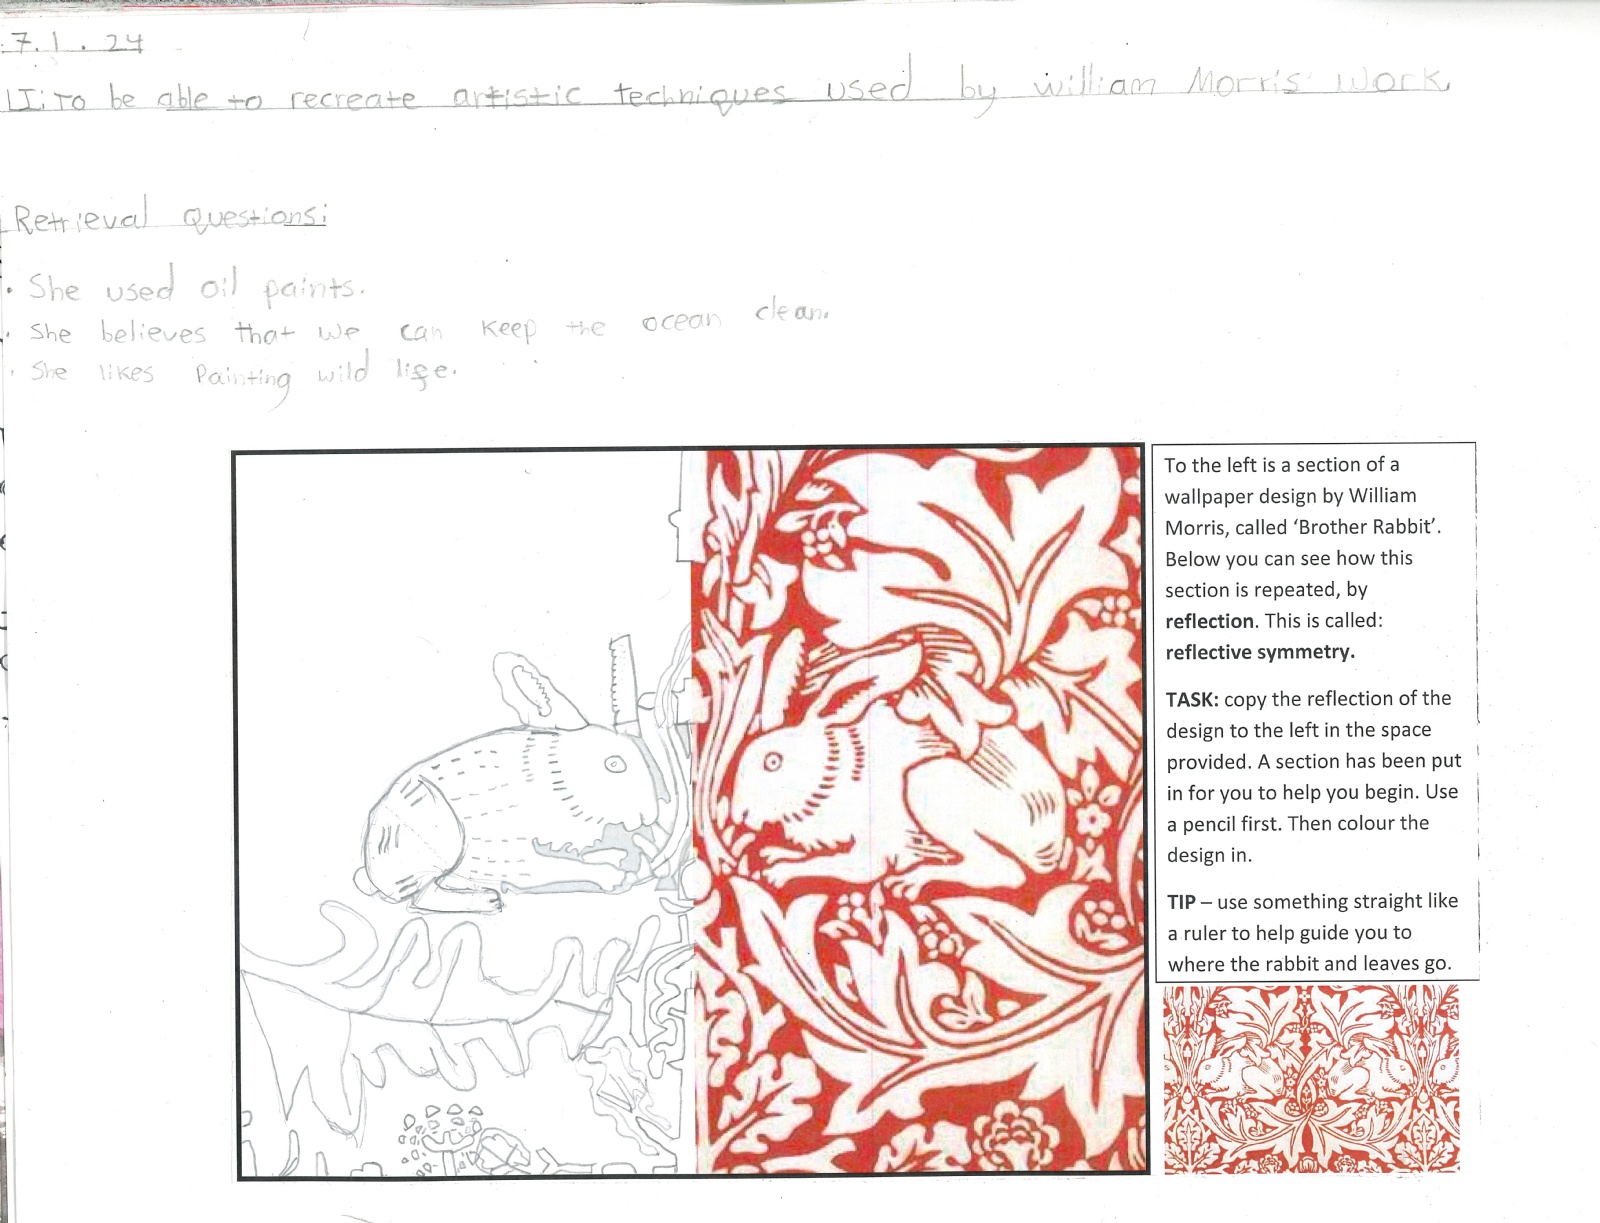 7.1.24
LI: To be able to recreate artistic techniques used by william Morris' Work.
Retrieval questions:
• She used oil paints.
• She believes that we can keep the ocean clean.
• She likes Painting wild life.
To the left is a section of a
wallpaper design by William
Morris, called ‘Brother Rabbit’.
Below you can see how this
section is repeated, by
reflection. This is called:
reflective symmetry.
TASK: copy the reflection of the
design to the left in the space
provided. A section has been put
in for you to help you begin. Use
a pencil first. Then colour the
design in.
TIP – use something straight like
a ruler to help guide you to
where the rabbit and leaves go.